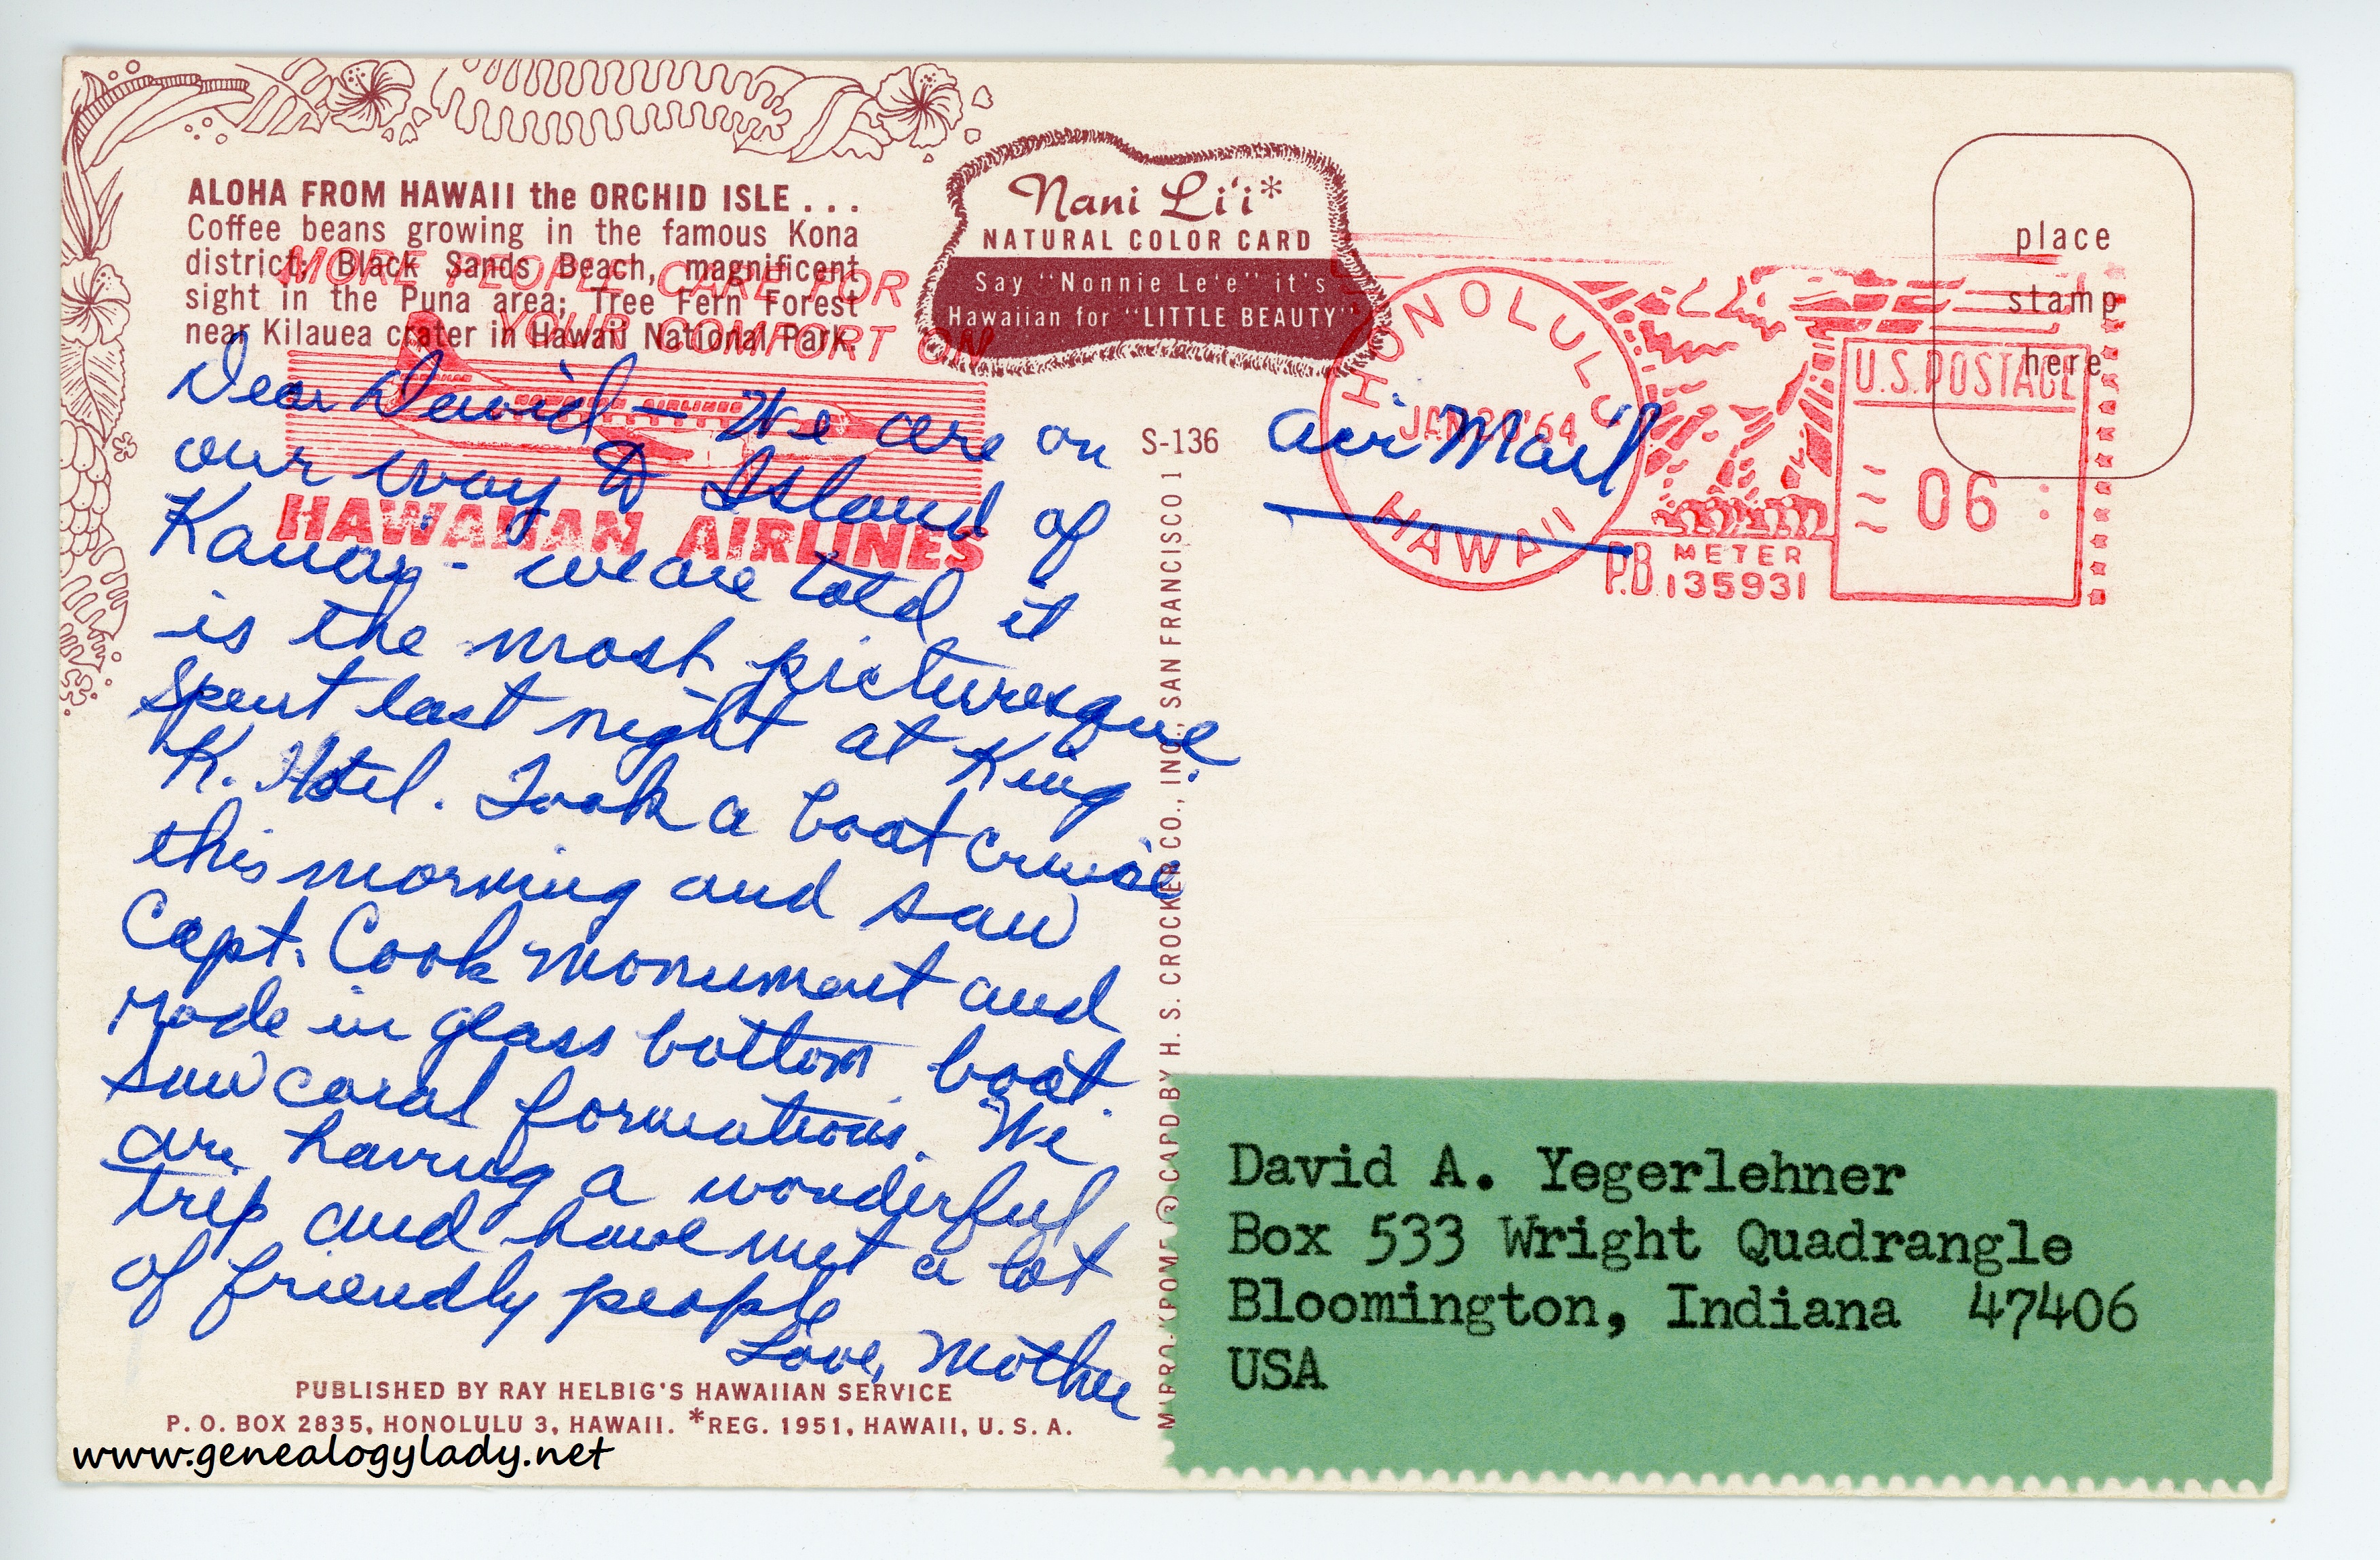 ALOHA FROM HAWAII the ORCHID ISLE . . .
Coffee beans growing in the famous Kona
district; Black Sands Beach, magnificent
sight in the Puna area; Tree Fern Forest
near Kilauea crater in Hawaii National Park.
MORE PEOPLE CARE FOR
YOUR COMFORT ON
HAWAIIAN AIRLINES
HAWAIIAN AIRLINES
Nani Li'i*
NATURAL COLOR CARD
Say "Nonnie Le'e" it's
Hawaiian for "LITTLE BEAUTY"
place
stamp
here
HONOLULU
JAN 20 '64
HAWAII
U.S. POSTAGE
06
P.B. METER
135931
S-136
Air Mail
Dear David — We are on
our way to Island of
Kauay - we are told it
is the most picturesque.
Spent last night at King
K. Hotel. Took a boat cruise
this morning and saw
Capt. Cook monument and
rode in glass bottom boat.
Saw coral formations. We
are having a wonderful
trip and have met a lot
of friendly people
Love, Mother
PUBLISHED BY RAY HELBIG'S HAWAIIAN SERVICE
P. O. BOX 2835, HONOLULU 3, HAWAII. *REG. 1951, HAWAII, U. S. A.
CARD BY H. S. CROCKER CO., INC., SAN FRANCISCO 1
David A. Yegerlehner
Box 533 Wright Quadrangle
Bloomington, Indiana 47406
USA
www.genealogylady.net